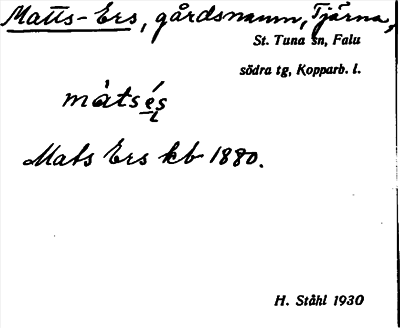 Matts-Ers, gårdsnamn, Tjärna,
St. Tuna sn, Falu
södra tg, Kopparb. l.
màtsés
Mats Ers kb 1880.
H. Ståhl 1930